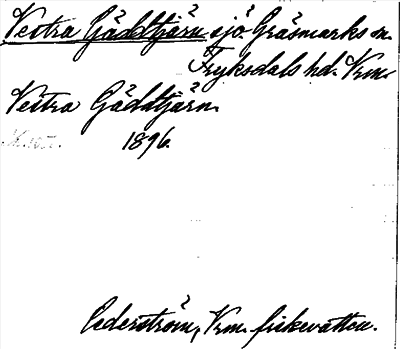 Vestra Gäddtjärn sjö. Gräsmarks sn.
Fryksdals hd. Vrm.
Vestra Gäddtjärn.
1896.
Cederström, Vrm. fiskevatten.